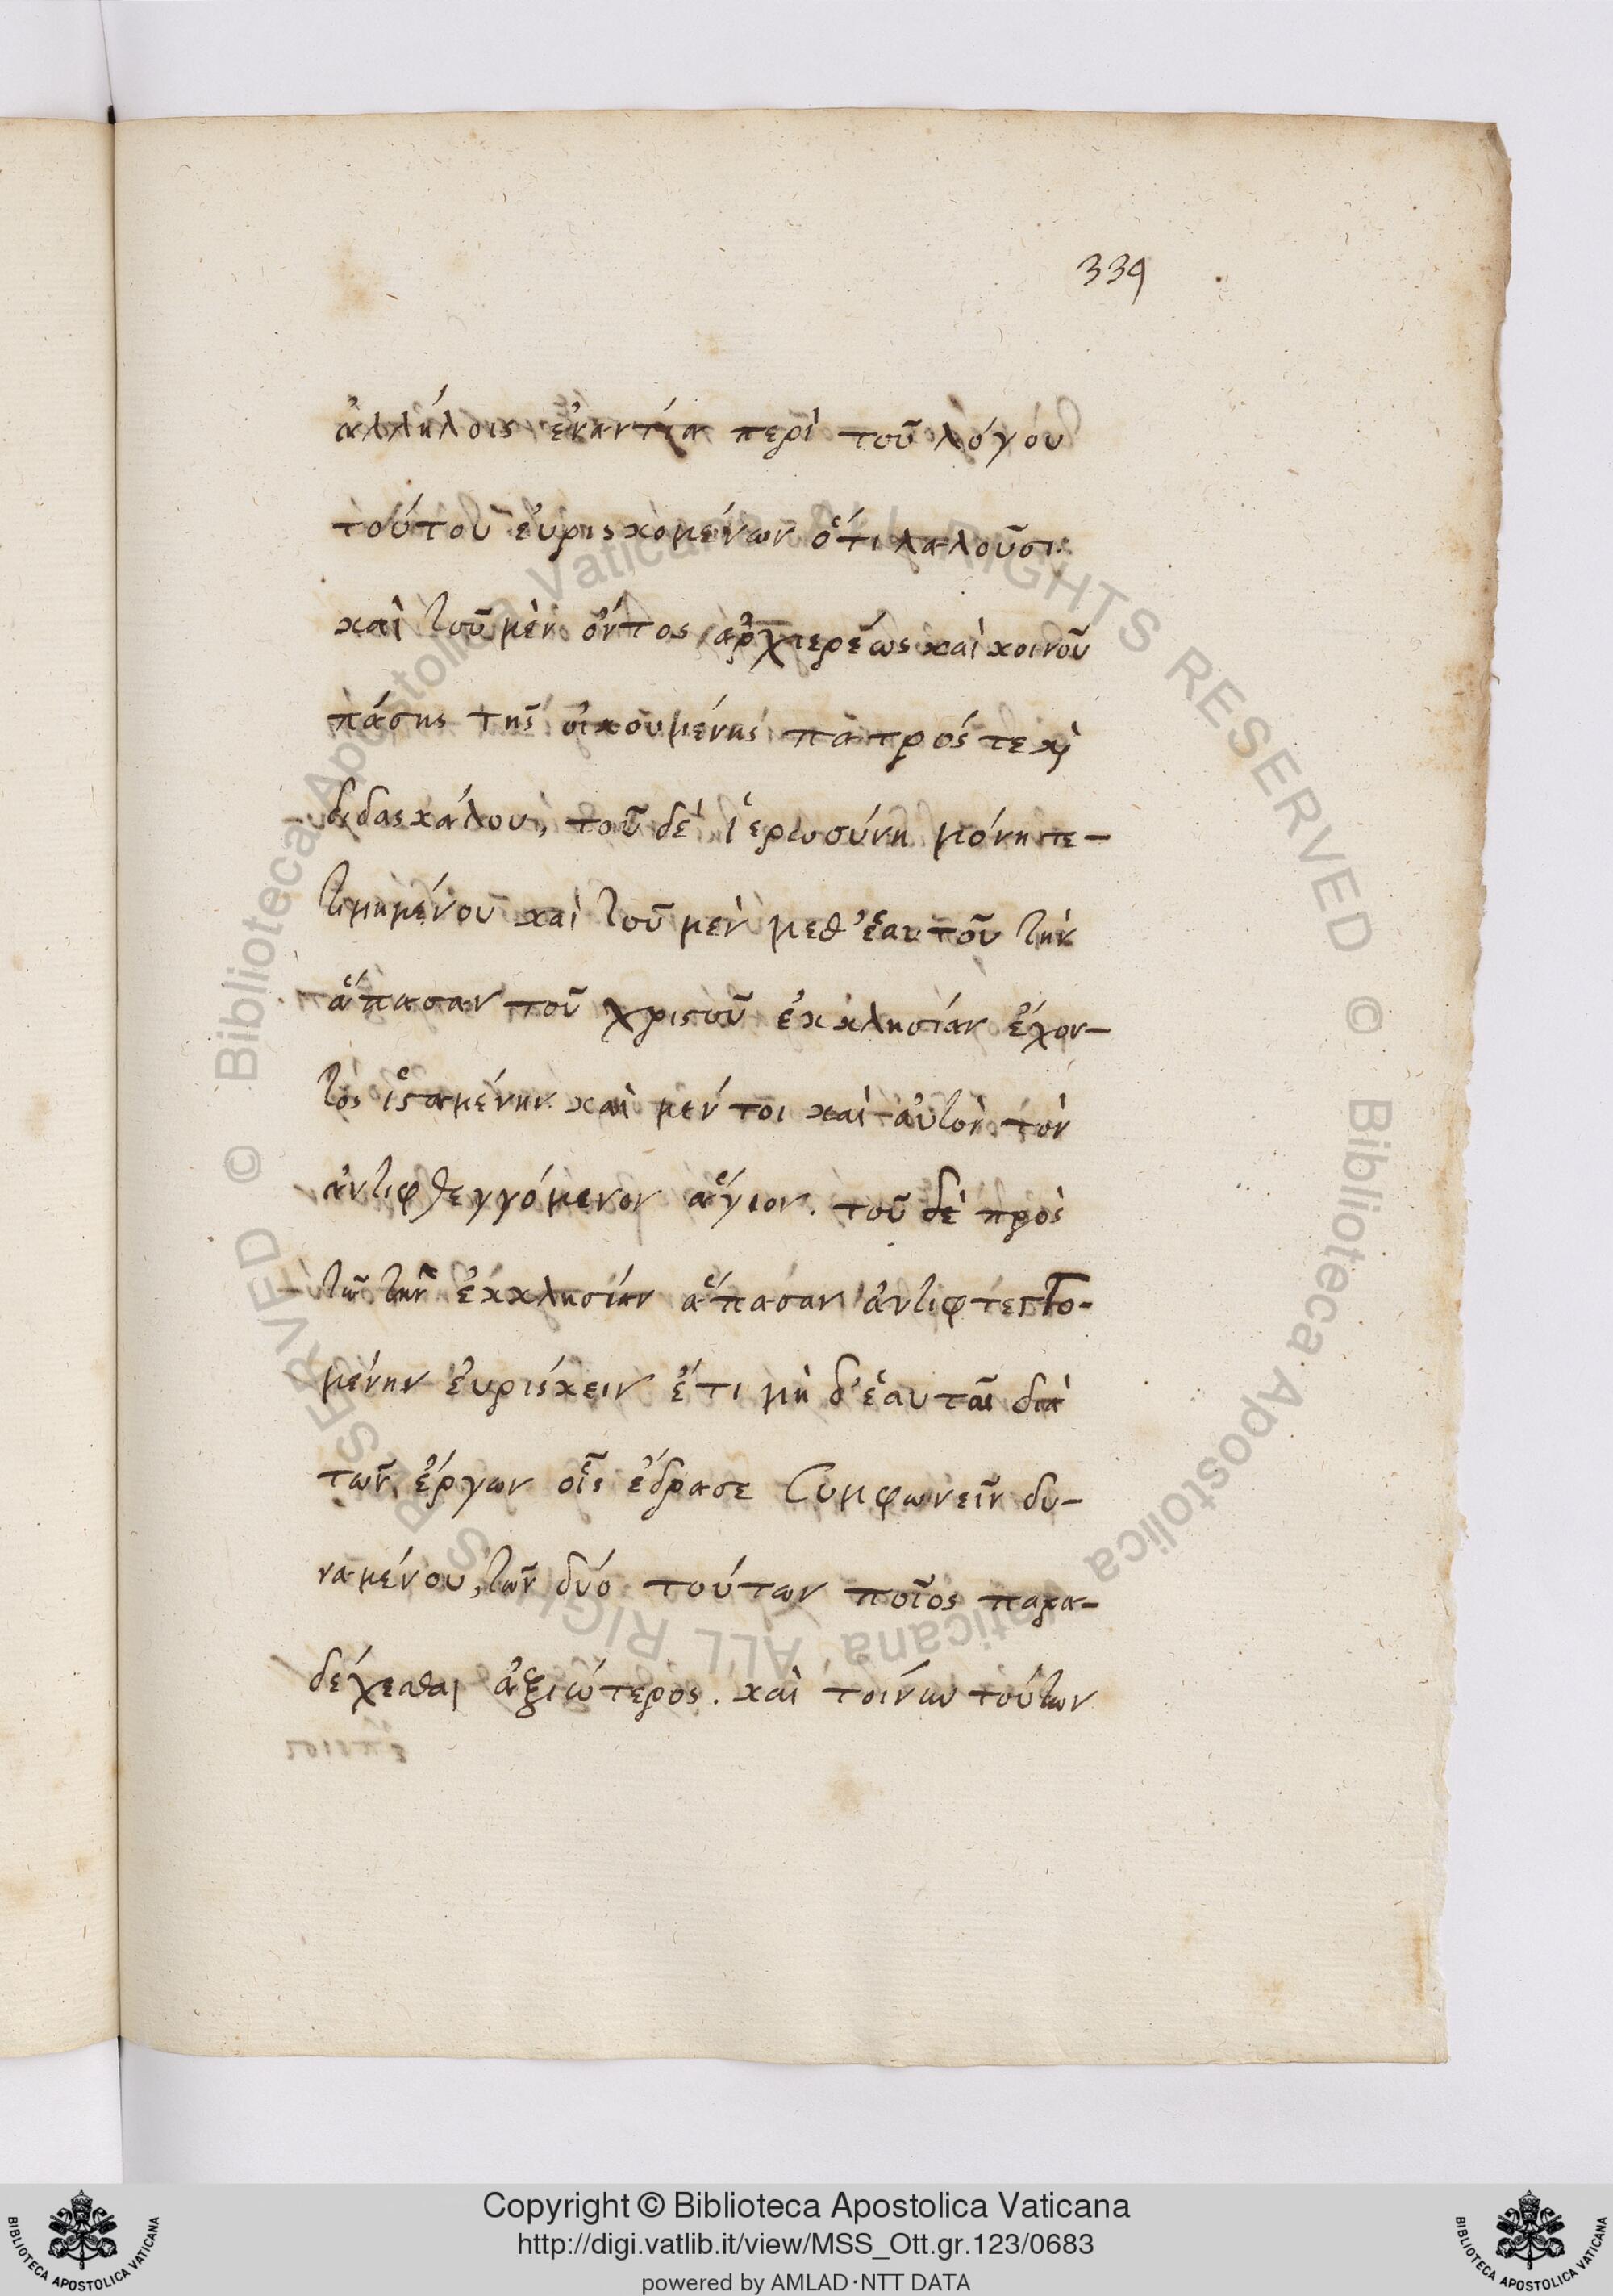 339
ἀλλήλοις ἐναντία περὶ τοῦ λόγου
τούτου ἐυρισκομένων ὅτι λαλοῦσι
καὶ τοῦ μὲν ὄντος ἀρχιερέως καὶ κοινοῦ
πάσης τῆς οἰκουμένης πατρός τε κὶ
διδασκάλου, τοῦ δὲ ἱερωσύνη μόνη τε–
τιμημένου καὶ τοῦ μὲν μεθ' ἑαυτοῦ τὴν
ἅπασαν τοῦ χριστοῦ ἐκκλησίαν ἔχον–
τος ἱσταμένην καὶ μέν τοι καὶ αὐτὸν τὸν
ἀντιφθεγγόμενον ἅγιον. τοῦ δὲ πρὸς
τῶ τὴν ἐκκλησίαν ἅπασαν ἀντιφτεγγο-
μένην ἐυρίσκειν ἔτι μὴ δ' ἑαυτῶ διὰ
τῶν ἔργων οἷς ἔδρασε συμφωνεῖν δυ–
ναμένου, τῶν δύο τούτων ποῖος παρα–
δέχεσθαι ἀξιώτερος. καὶ τοίνυν τούτων
Copyright © Biblioteca Apostolica Vaticana
http://digi.vatlib.it/view/MSS_Ott.gr.123/0683
powered by AMLAD·NTT DATA
BIBLIOTECA APOSTOLICA VATICANA
BIBLIOTECA APOSTOLICA VATICANA
© Biblioteca Apostolica Vaticana ALL RIGHTS RESERVED © Biblioteca Apostolica Vaticana ALL RIGHTS RESERVED